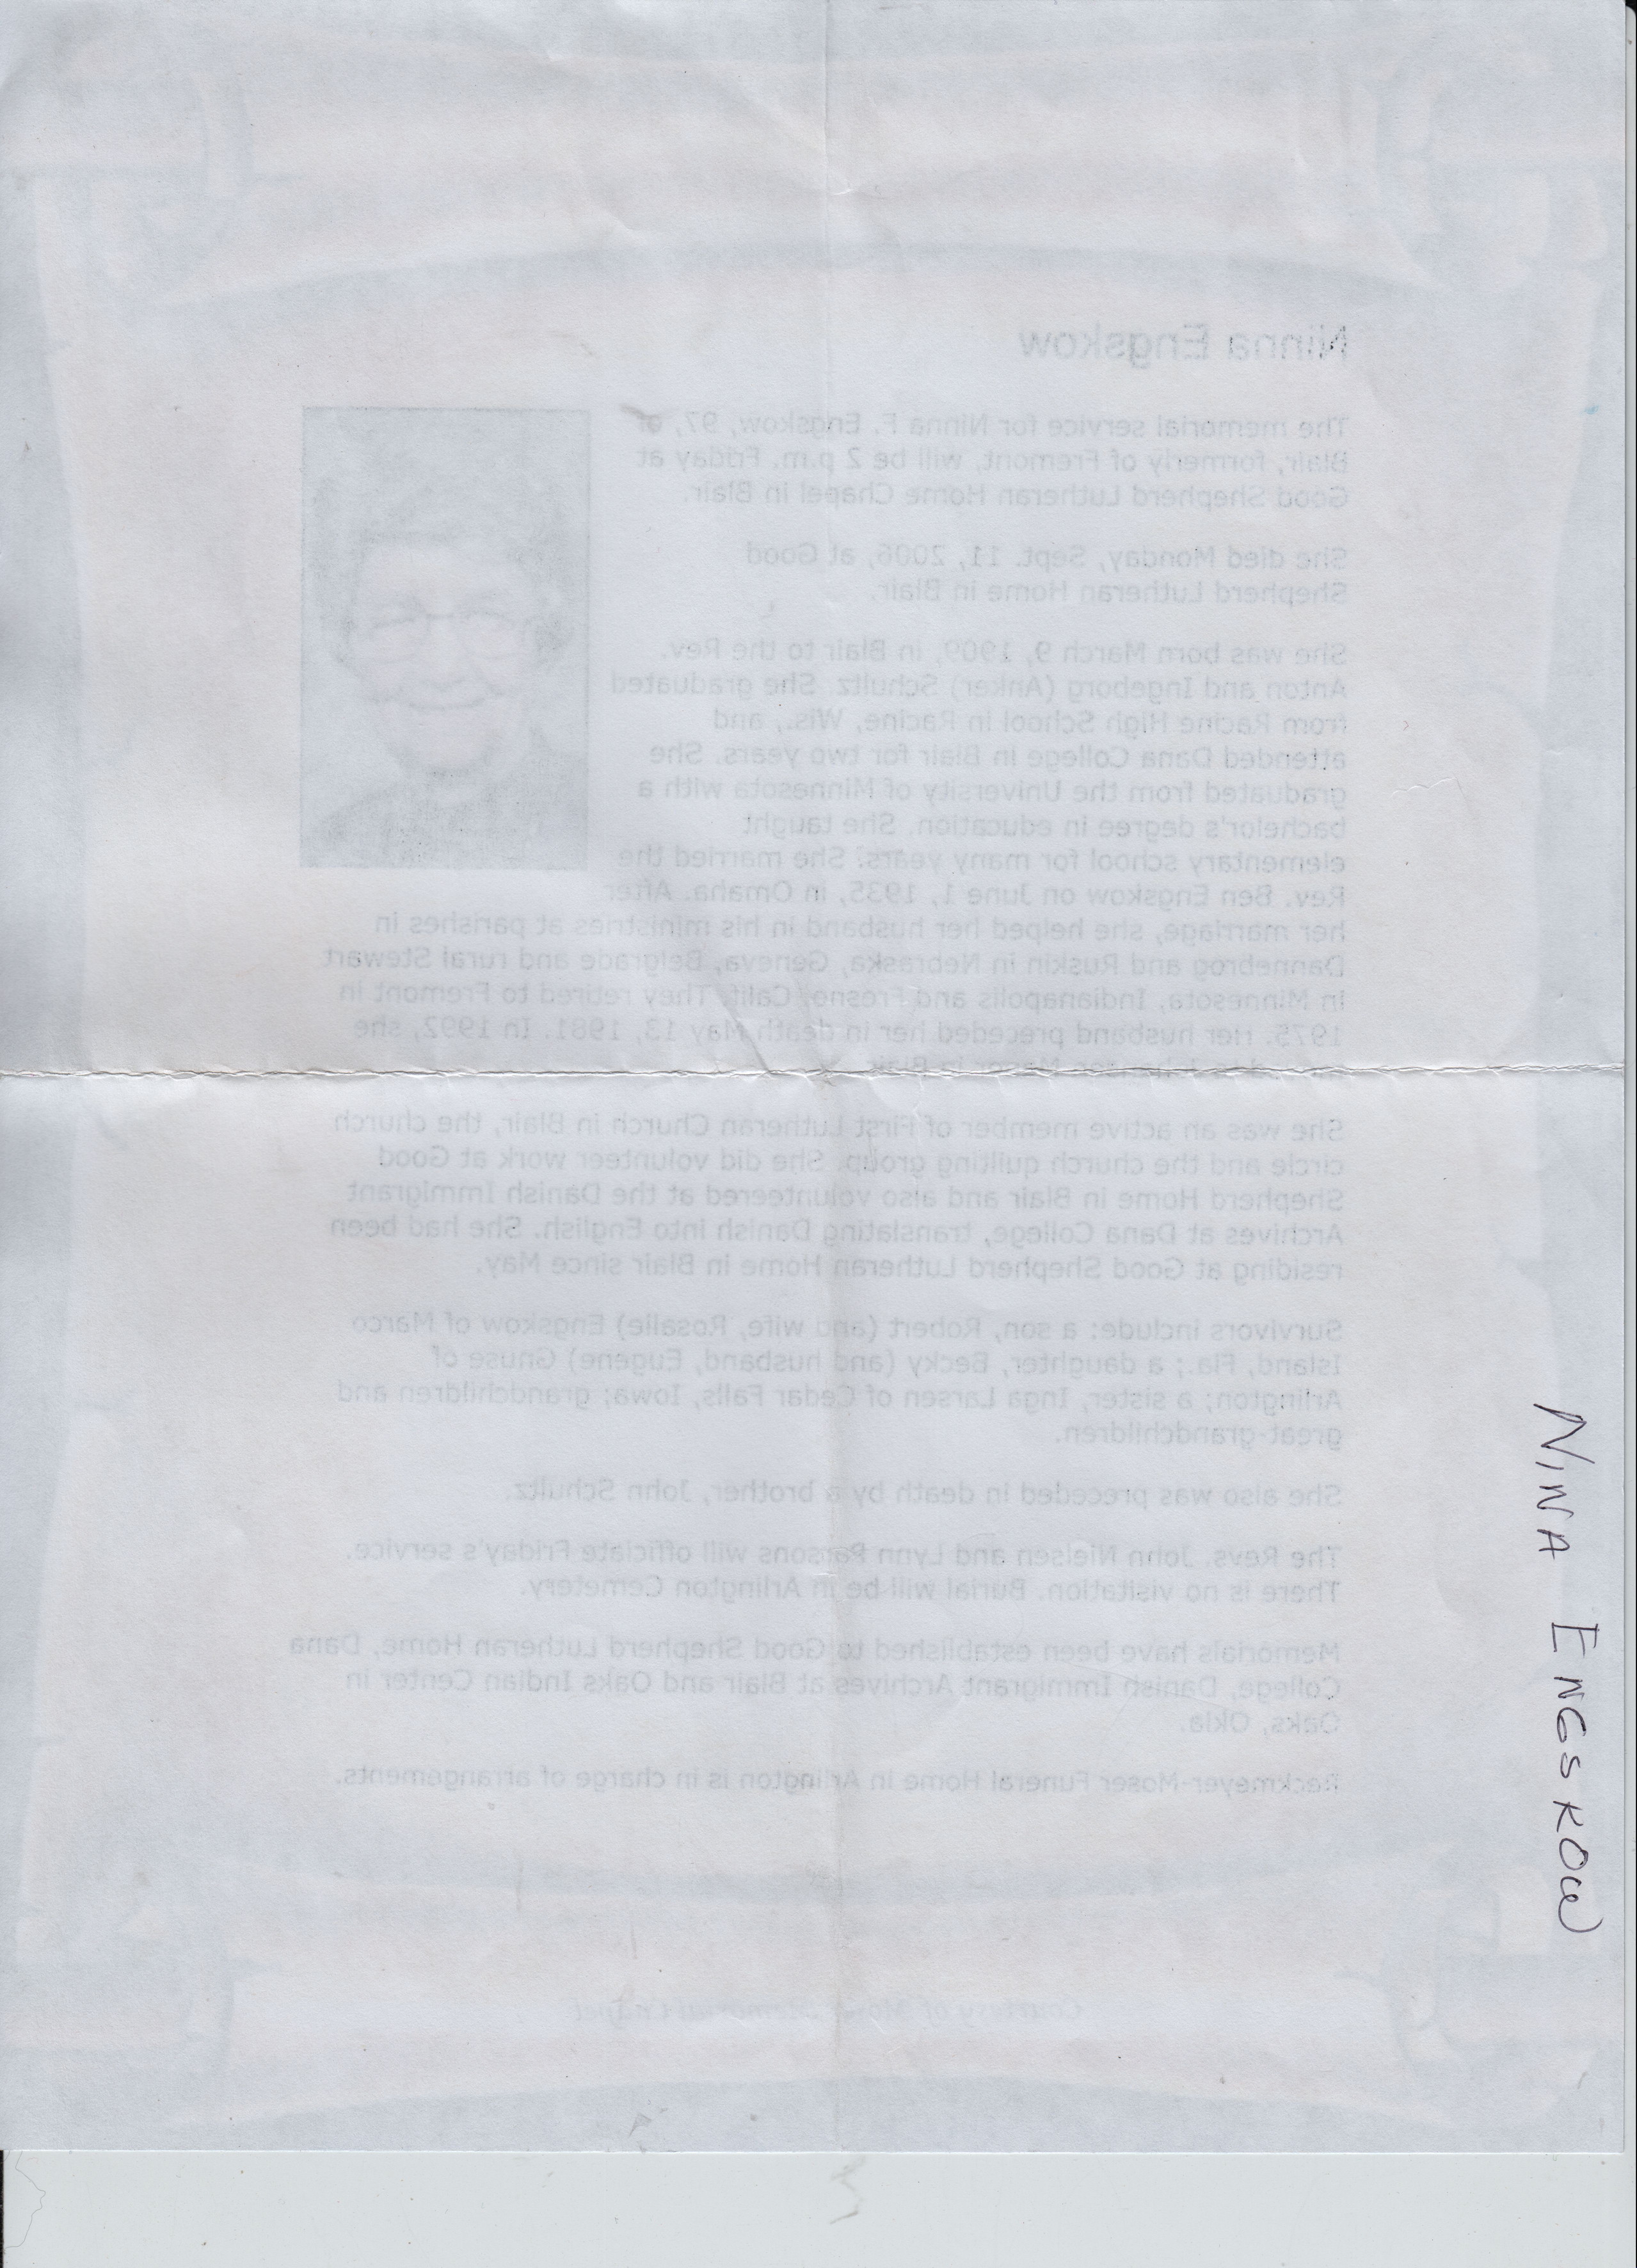 Ninna Engskow
The memorial service for Ninna F. Engskow, 97, of
Blair, formerly of Fremont, will be 2 p.m. Friday at
Good Shepherd Lutheran Home Chapel in Blair.
She died Monday, Sept. 11, 2006, at Good
Shepherd Lutheran Home in Blair.
She was born March 9, 1909, in Blair to the Rev.
Anton and Ingeborg (Anker) Schultz. She graduated
from Racine High School in Racine, Wis., and
attended Dana College in Blair for two years. She
graduated from the University of Minnesota with a
bachelor's degree in education. She taught
elementary school for many years. She married the
Rev. Ben Engskow on June 1, 1935, in Omaha. After
her marriage, she helped her husband in his ministries at parishes in
Dannebrog and Ruskin in Nebraska, Geneva, Belgrade and rural Stewart
in Minnesota, Indianapolis and Fresno, Calif. They retired to Fremont in
1975. Her husband preceded her in death May 13, 1981. In 1992, she
Manor in Blair.
She was an active member of First Lutheran Church in Blair, the church
circle and the church quilting group. She did volunteer work at Good
Shepherd Home in Blair and also volunteered at the Danish Immigrant
Archives at Dana College, translating Danish into English. She had been
residing at Good Shepherd Lutheran Home in Blair since May.
Survivors include: a son, Robert (and wife, Rosalie) Engskow of Marco
Island, Fla.; a daughter, Becky (and husband, Eugene) Gnuse of
Arlington; a sister, Inga Larsen of Cedar Falls, Iowa; grandchildren and
great-grandchildren.
She also was preceded in death by a brother, John Schultz.
The Revs. John Nielsen and Lynn Parsons will officiate Friday's service.
There is no visitation. Burial will be in Arlington Cemetery.
Memorials have been established to Good Shepherd Lutheran Home, Dana
College, Danish Immigrant Archives at Blair and Oaks Indian Center in
Oaks, Okla.
Reckmeyer-Moser Funeral Home in Arlington is in charge of arrangements.
Courtesy of Moser Memorial Chapel
NINA ENGSKOW